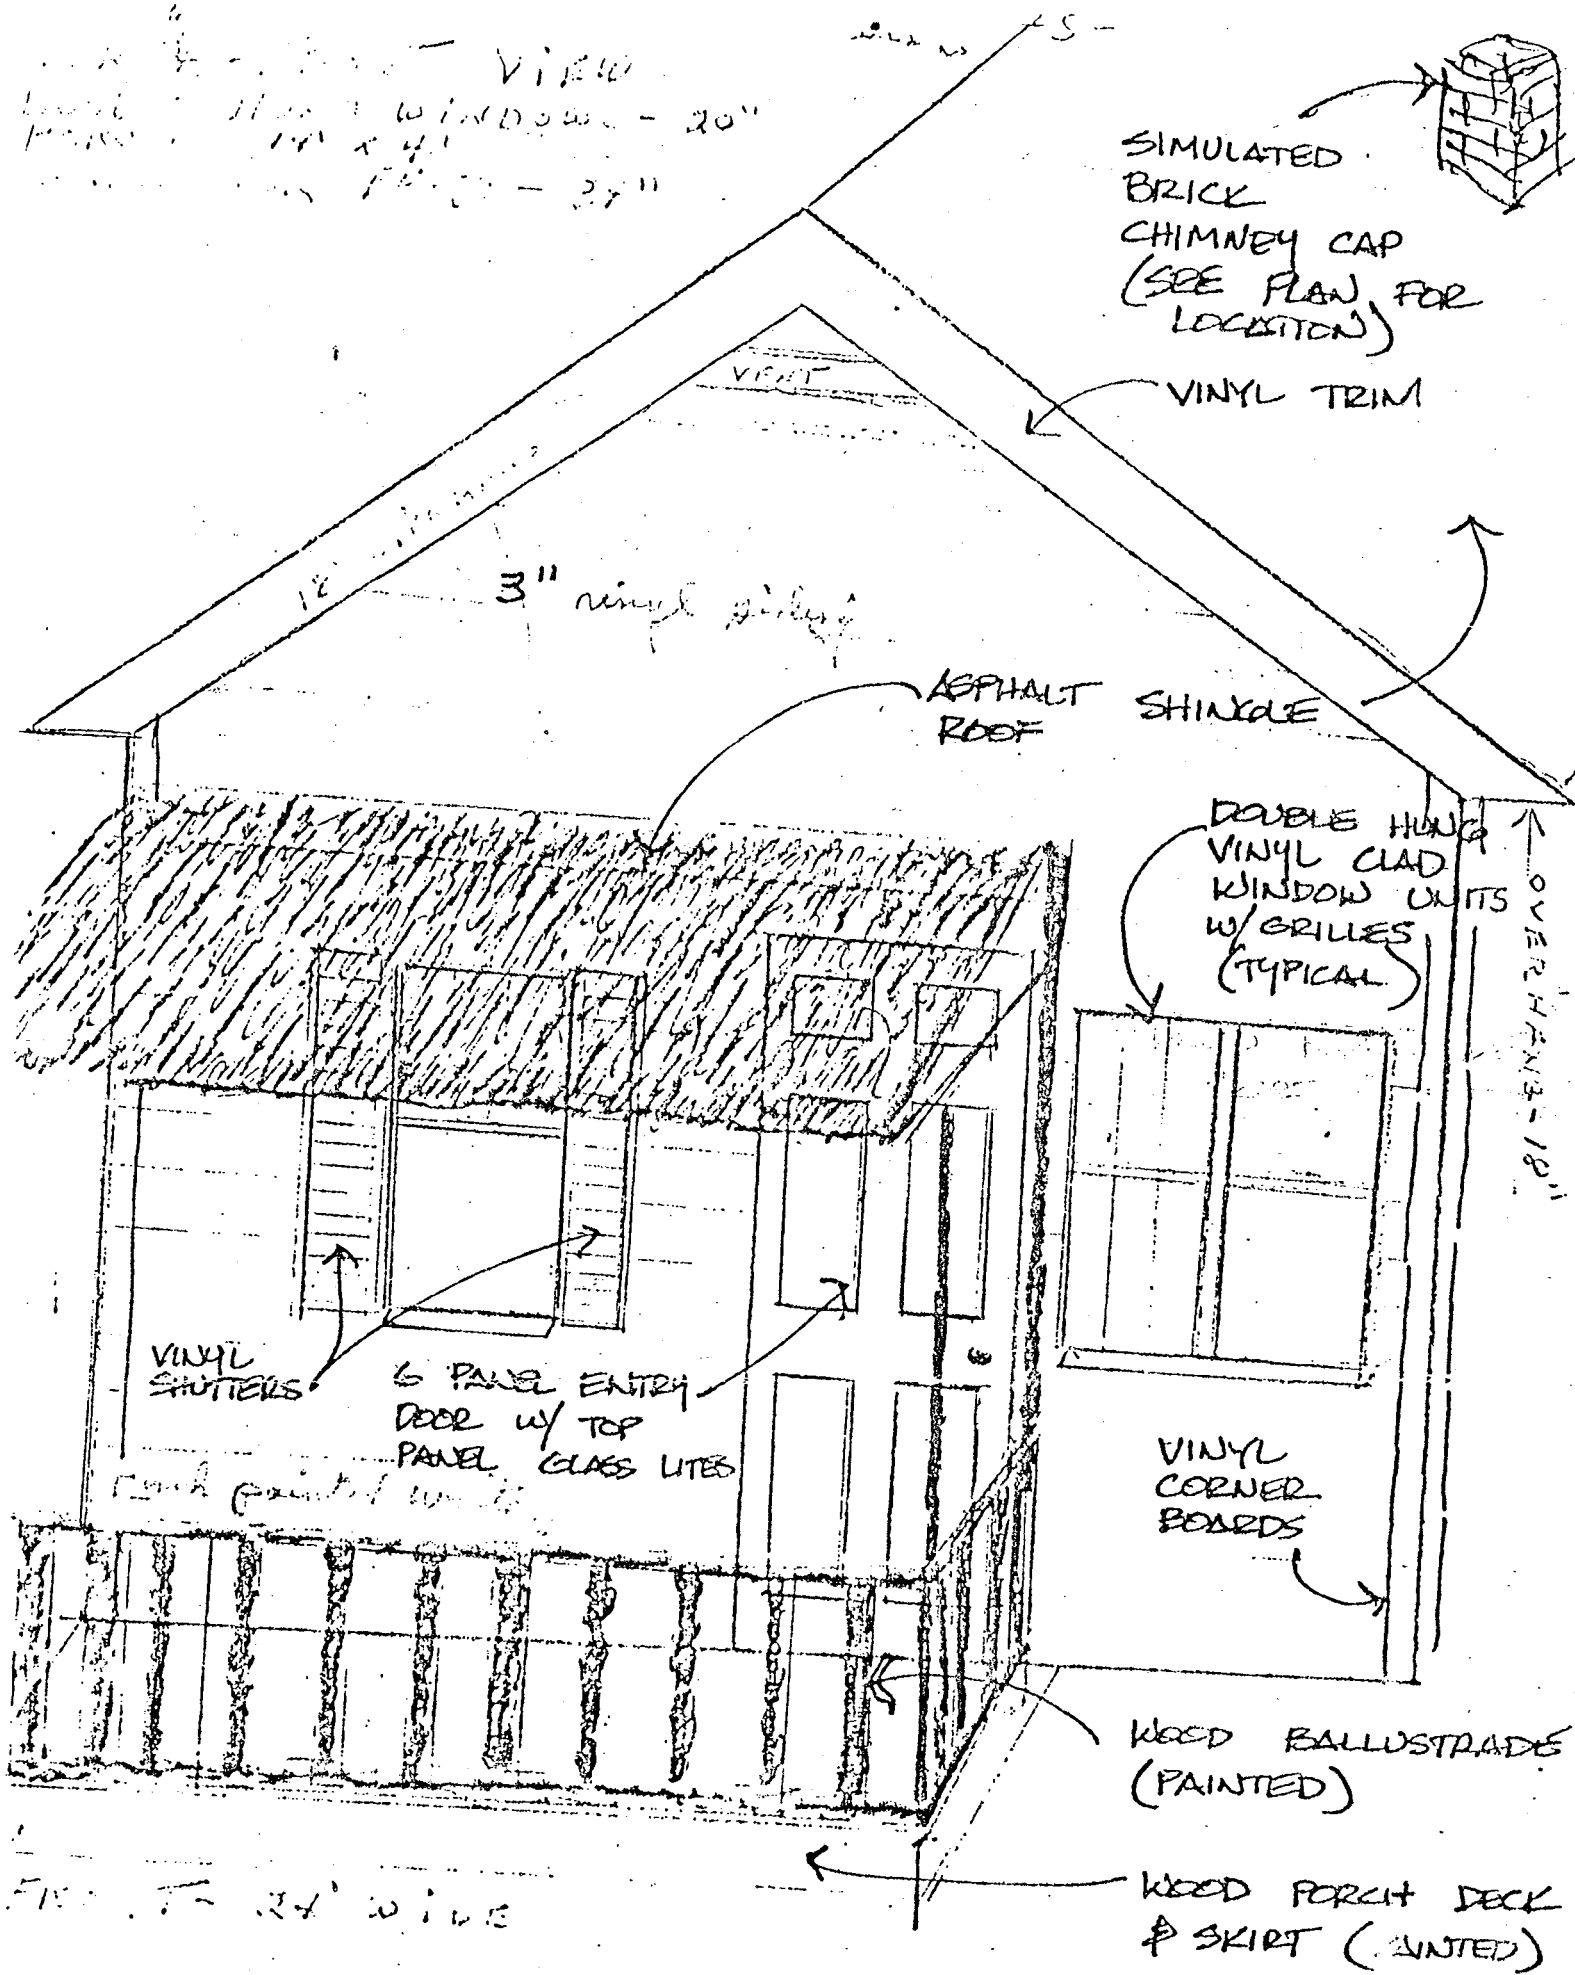 VIEW
WINDOWS - 20"
SIMULATED
BRICK
CHIMNEY CAP
(SEE PLAN FOR
LOCATION)
VENT
VINYL TRIM
3" vinyl siding
ASPHALT SHINGLE
ROOF
DOUBLE HUNG
VINYL CLAD
WINDOW UNITS
W/ GRILLES
(TYPICAL)
OVERHANG - 18"
VINYL
SHUTTERS
6 PANEL ENTRY
DOOR W/ TOP
PANEL GLASS LITES
VINYL
CORNER
BOARDS
painted
WOOD BALLUSTRADE
(PAINTED)
WIDE
WOOD PORCH DECK
& SKIRT (PAINTED)